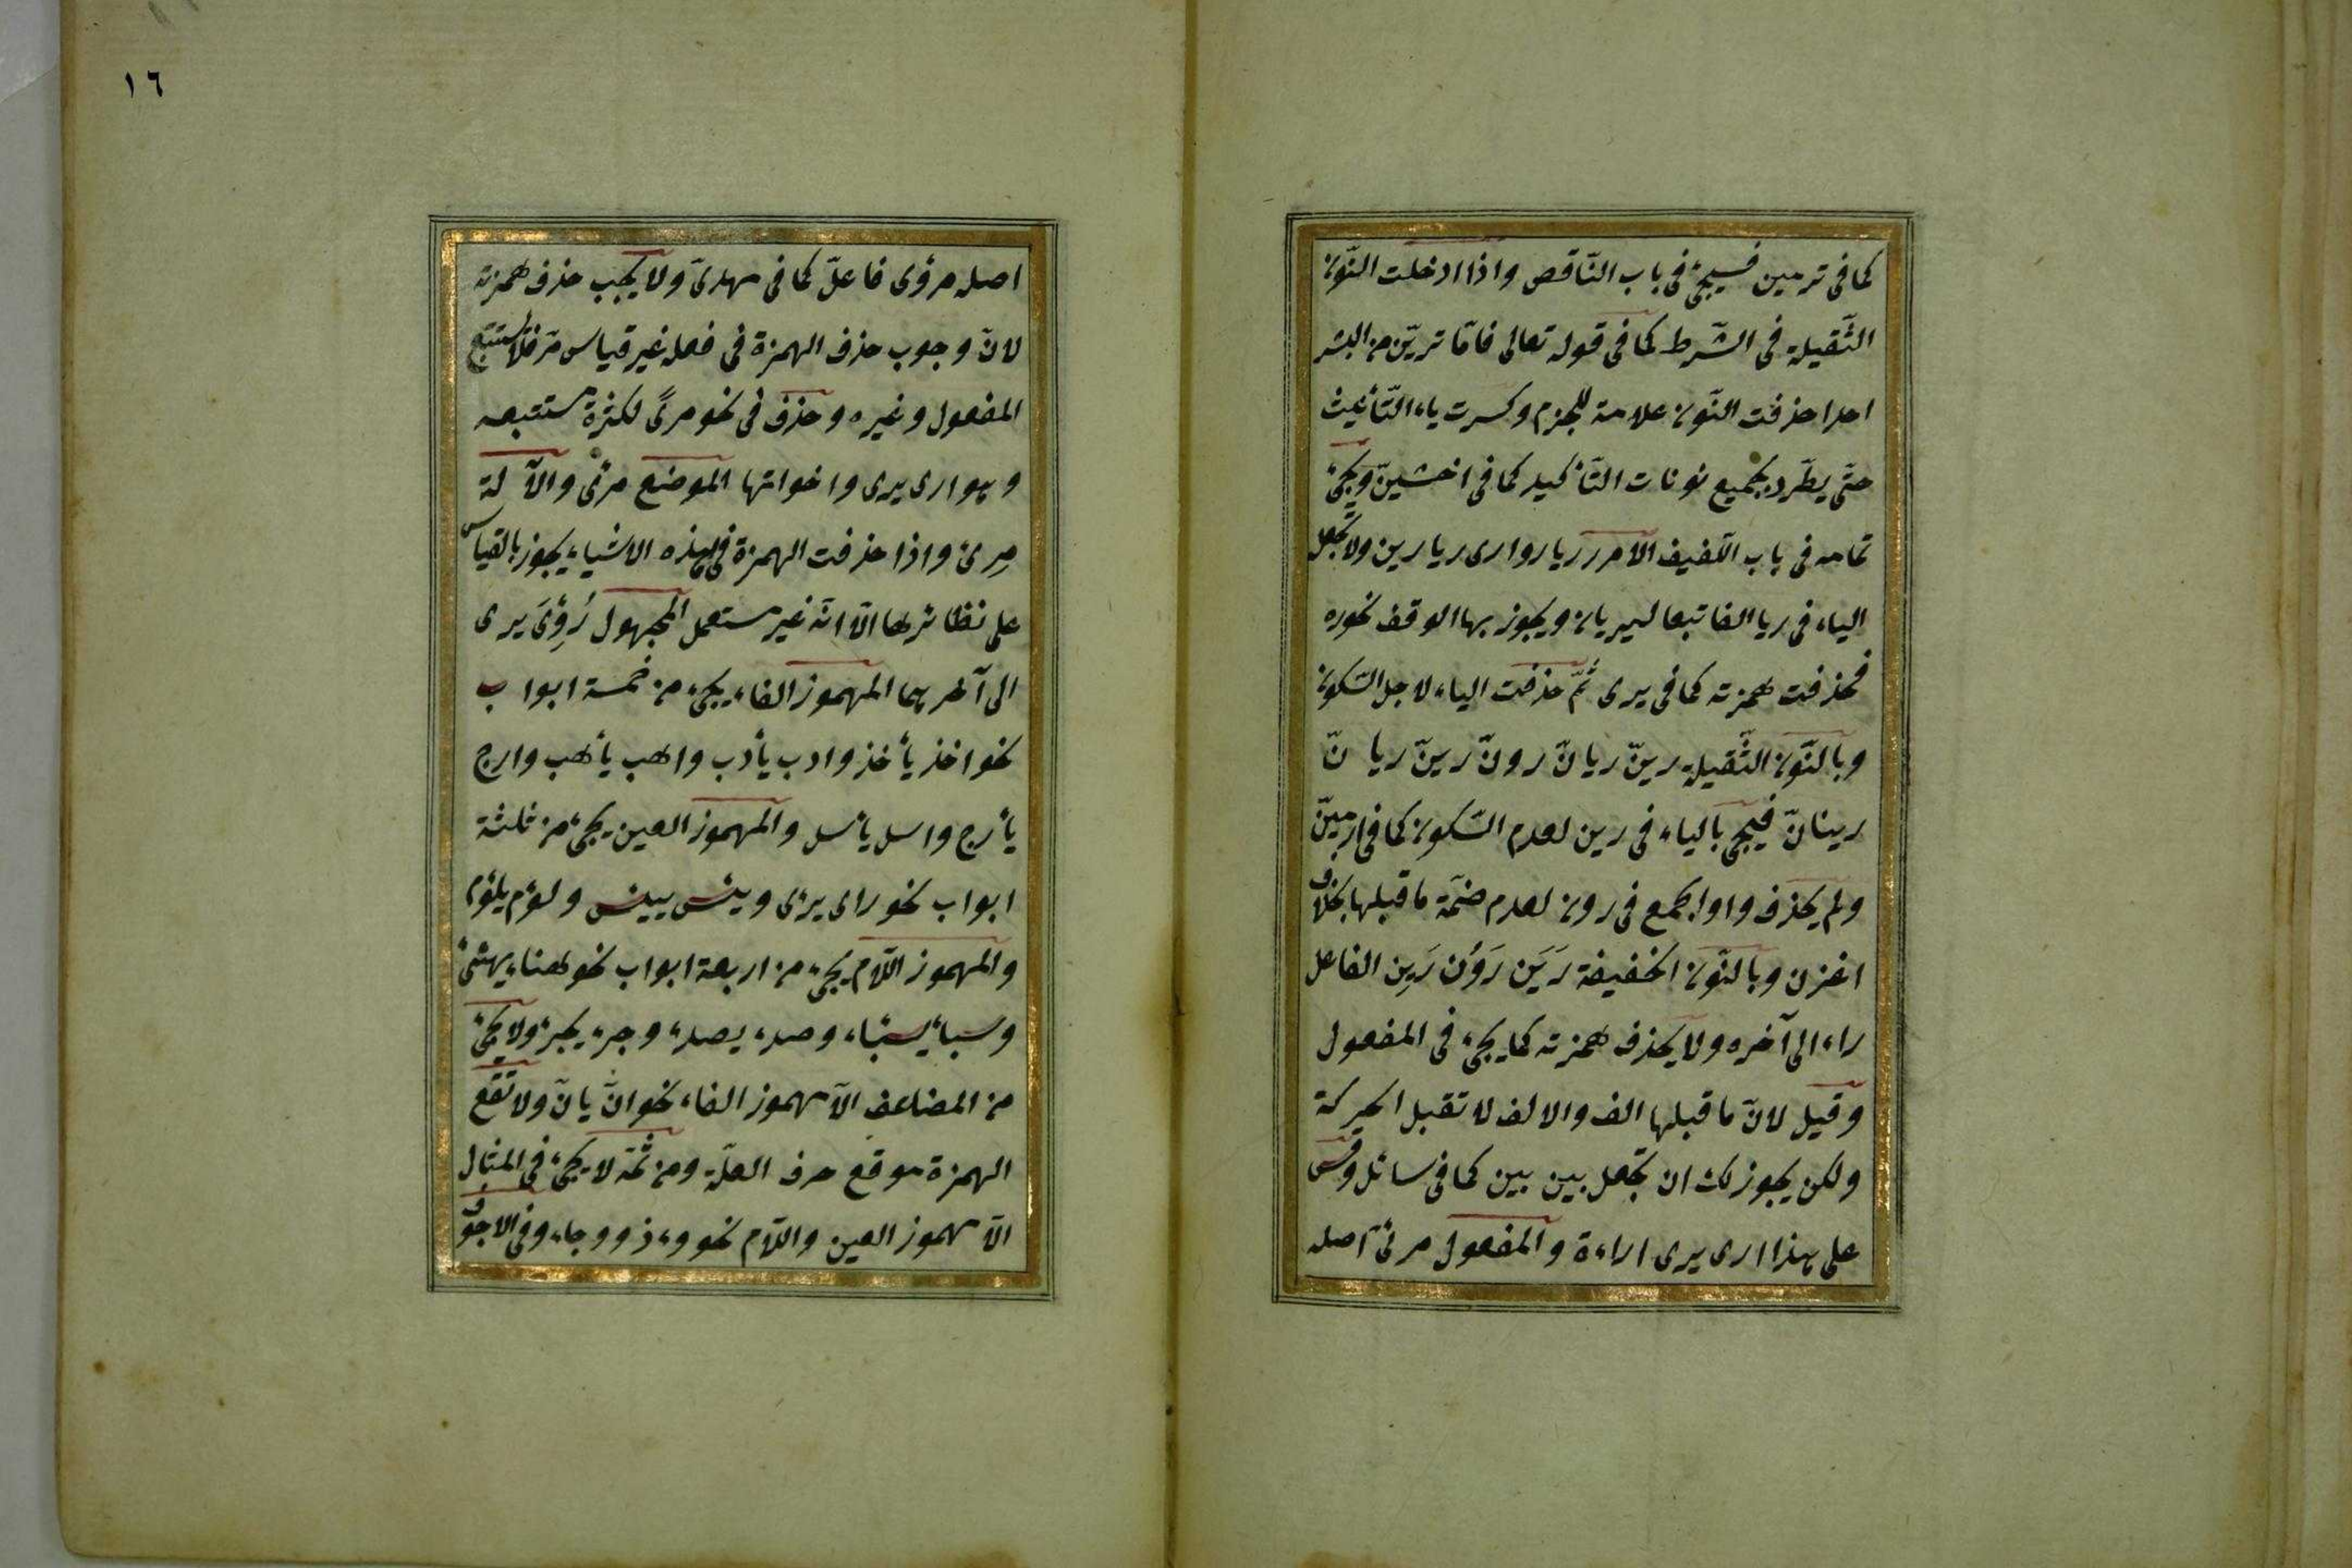 كما فى ترمين فسيجئ فى باب النّاقص واذا ادخلت النّون
الثّقيلة فى الشّرط كما فى قوله تعالى فامّا ترينّ من البشر
احدا حذفت النّون علامة للجزم وكسرت ياء التّأنيث
حتّى يطّرد بجميع نونات التّأكيد كما فى اخشينّ ويجئ
تمامه فى باب اللّفيف الامر ر ريا روا رى ريا رين ولا تجعل
الياء فى ريا الفا تبعا ليريان ويجوز بها الوقف نحو ره
فحذفت همزته كما فى يرى ثمّ حذفت الياء لاجل السّكون
وبالنّون الثّقيلة رينّ ريانّ رونّ رينّ ريانّ
رينانّ فيجئ بالياء فى رين لعدم السّكون كما فى ارمينّ
ولم يحذف واو الجمع فى رون لعدم ضمّة ما قبلها بخلاف
اغزن وبالنّون الخفيفة رَيَن رَوُن رَيِن الفاعل
راء الى آخره ولا يحذف همزته كما يجئ فى المفعول
وقيل لانّ ما قبلها الف والالف لا تقبل الحركة
ولكن يجوز لك ان تجعل بين بين كما فى سائل وقس
على هذا ارى يرى اراءة والمفعول مرئى اصله
١٦
اصله مرؤى فاعلّ كما فى مهدىّ ولا يجب حذف همزته
لانّ وجوب حذف الهمزة فى فعله غير قياس مرّ فلا يستتبع
المفعول وغيره وحذف فى نحو مرىً لكثرة مستتبعه
وهو ارى يرى واخواتها الموضع مرئى والآلة
مِرئ واذا حذفت الهمزة فى هذه الاشياء يجوز بالقياس
على نظائرها الّا انّه غير مستعمل المجهول رُوِئَ يرى
الى آخرهما المهموز الفاء يجئ من خمسة ابواب
نحو اخذ يأخذ وادب يأدب واهب يأهب وارج
يأرج واسل يأسل والمهموز العين يجئ من ثلثة
ابواب نحو راى يرئى ويئس ييئس ولؤم يلؤم
والمهموز اللّام يجئ من اربعة ابواب نحو هناء يهنئ
وسبأ يسبأ، وصدء يصدء وجرء يجرء ولا يجئ
من المضاعف الّا مهموز الفاء نحو انّ يانّ ولا تقع
الهمزة موقع حرف العلّة ومن ثمّة لا يجئ فى المثال
الّا مهموز العين واللّام نحو وءذ ووجاء وفى الاجوف